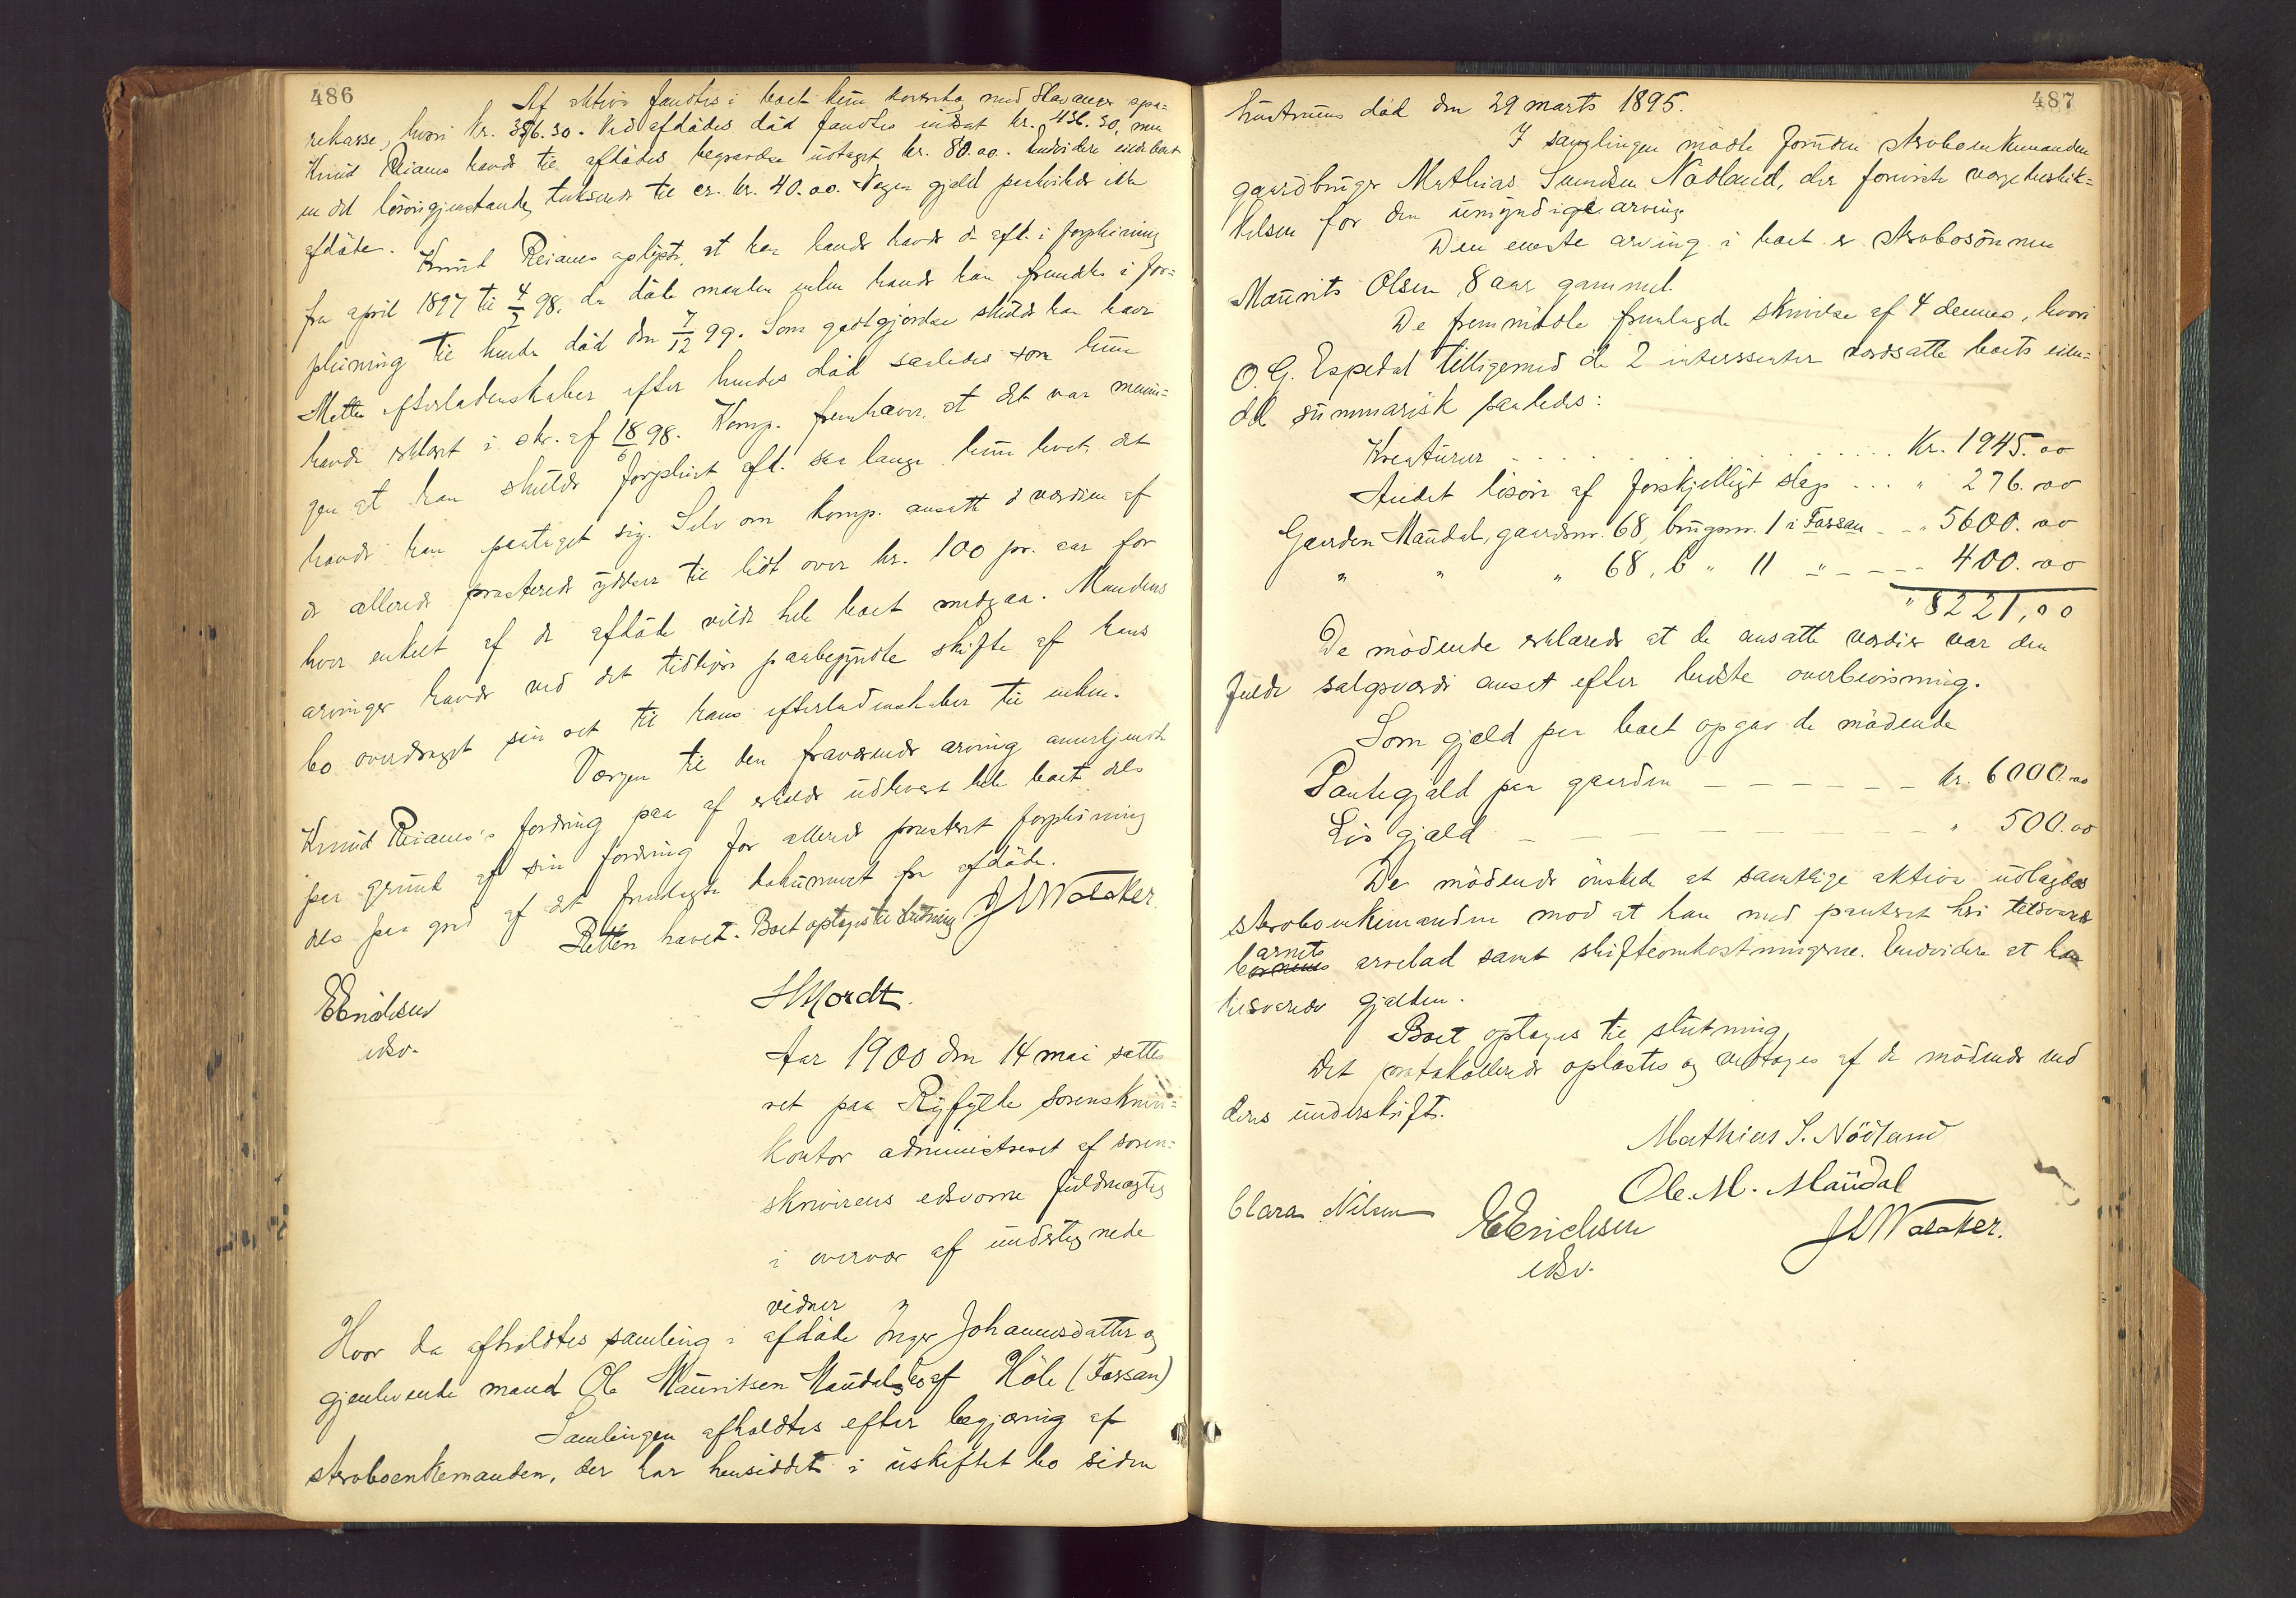 486
Af aktiva fandtes i boet kun kontrabog med Stavanger spa=
rekasse, hvori kr. 356.30. Ved afdødes død fandtes indsat kr. 436.30, men
Knud Reianes havde til afdødes begravelse udtaget kr. 80.00. Endvidere eiede boet
en del løsøregjenstande, takserede til ca. kr. 40.00. Nogen gjæld paahviler ikke
afdøde.
Knud Reianes oplyste, at han havde havt de afd. i forpleining
fra april 1897 til 4/7 98, da døde manden enken havde han fremdeles i for=
pleining til hendes død den 7/12 99. Som godtgjørelse skulde han have
Mettes efterladenskaber efter hendes død saaledes som hun
havde erklært i skr. af 18/6 98. Komp. fremhæver, at det var menin=
gen at han skulde forpleiet afd. saa længe hun levet, det
havde han paataget sig. Selv om komp. ansatte værdien af
de allerede præsterede ydelser til lidt over kr. 100 pr. aar for
hver enkelt af de afdøde vilde hele boet medgaa. Mandens
arvinger havde ved det tidligere paabegyndte skifte af hans
bo overdraget sin ret til hans efterladenskaber til enken.
Vergen til den fraværende arving anerkjendte
Knud Reianes's fordring paa at erholde udlevert hele boet dels
paa grund af sin fordring for allerede præsteret forpleining
dels paa grund af det fremlagte dokument fra afdøde.
Retten hævet. Boet optages til slutning J L Walaker.
E Erichsen H Mordt.
edsv.
Aar 1900 den 14 mai sattes
ret paa Ryfylke sorenskriver=
kontor administreret af soren=
skriverens edsvorne fuldmægtig
i overvær af undertegnede
vidner
Hvor da afholdtes samling i afdøde Inger Johannesdatter og
gjenlevende mand Ole Mauritsen Maudals bo af Høle (Fossan)
Samlingen afholdtes efter begjæring af
stervboenkemanden, der har hensiddet i uskiftet bo siden
487
hustruens død den 29 marts 1895.
I samlingen mødte foruden stervboenkemanden
gaardbruger Mathias Svendsen Nødland, der foreviste vergebeskik=
kelsen for den umyndige arving.
Den eneste arving i boet er stervbosønnen
Maurits Olsen 8 aar gammel.
De fremmødte fremlagde skrivelse af 4 dennes, hvori
O. G. Espedal tilligemed de 2 interessenter værdsatte boets eien=
del summarisk saaledes:
Kreaturer . . . . . . . . . . Kr. 1945.00
Andet løsøre af forskjelligt slags . . . " 276.00
Gaarden Maudal, gaardsnr. 68, brugsnr. 1 i Fossan - - " 5600.00
" " " 68, b " 11 " - - - - 400.00
" 8221,00
De mødende erklærede at de ansatte værdier var den
fulde salgsværdi anset efter bedste overbevisning.
Som gjæld paa boet opgav de mødende
Pantegjæld paa gaarden - - - - - - kr. 6000.00
Løs gjæld - - - - - - - - " 500.00
De mødende ønskede at samtlige aktiva udlægges
stervboenkemanden mod at han med panteret heri tilsvarer
barnets arvelod samt skifteomkostningerne. Endvidere at han
tilsvarede gjælden.
Boet optages til slutning,
Det protokollerede oplæstes og vedtages af de mødende ved
deres underskrift.
Mathias S. Nödland
Ole. M. Maudal
Clara Nilsen E Erichsen J L Walaker.
edsv.